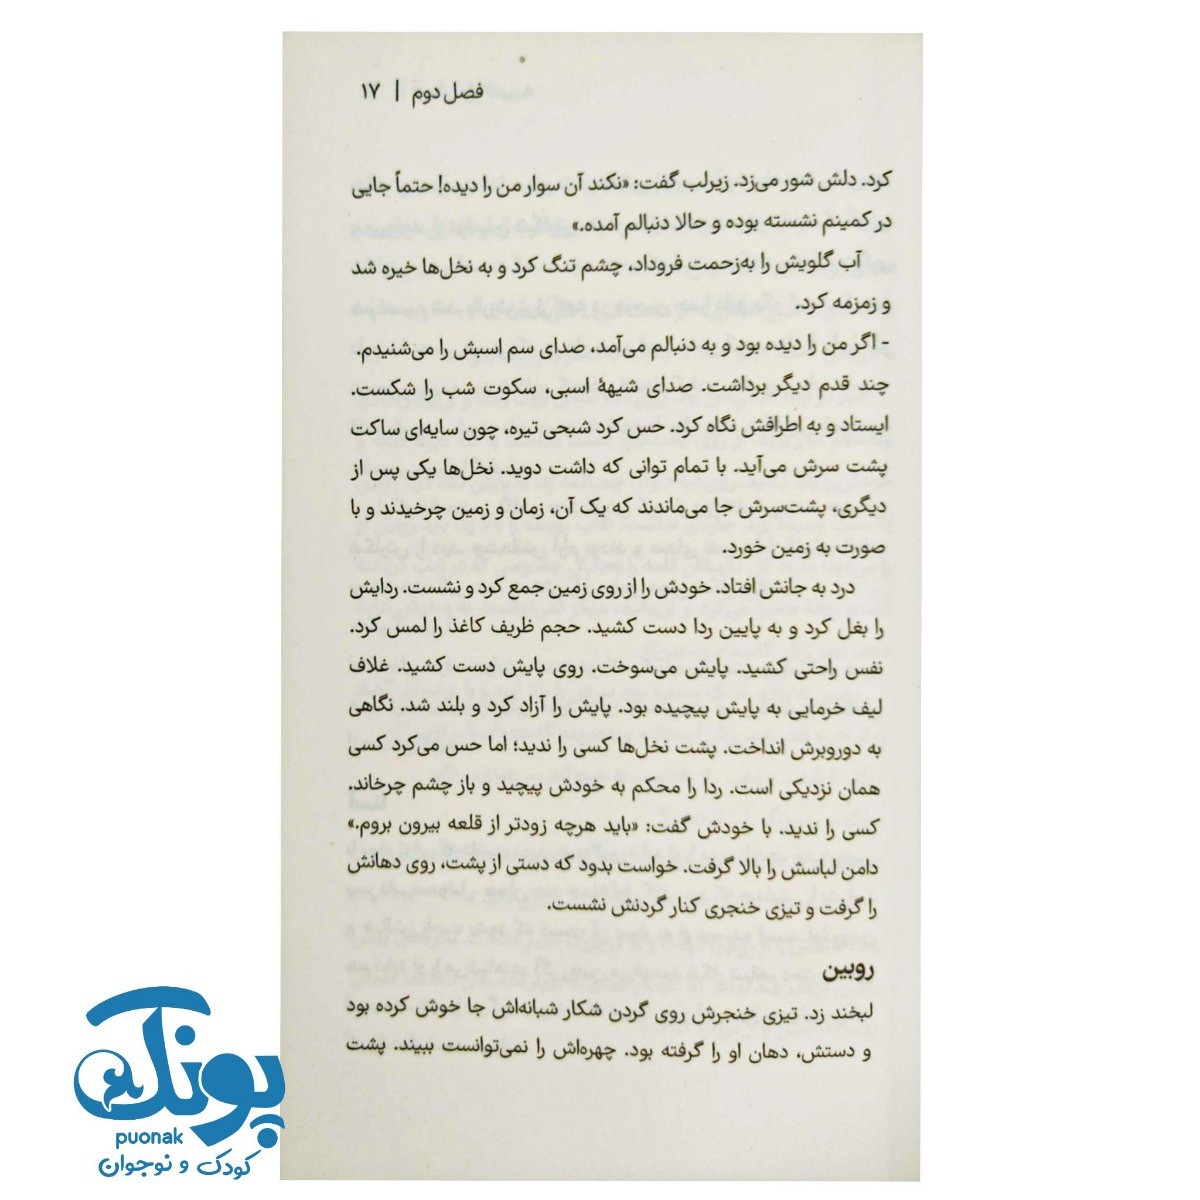 فصل دوم | ۱۷
کرد. دلش شور می‌زد. زیرلب گفت: «نکند آن سوار من را دیده! حتماً جایی
در کمینم نشسته بوده و حالا دنبالم آمده.»
آب گلویش را به‌زحمت فروداد، چشم تنگ کرد و به نخل‌ها خیره شد
و زمزمه کرد.
- اگر من را دیده بود و به دنبالم می‌آمد، صدای سم اسبش را می‌شنیدم.
چند قدم دیگر برداشت. صدای شیههٔ اسبی، سکوت شب را شکست.
ایستاد و به اطرافش نگاه کرد. حس کرد شبحی تیره، چون سایه‌ای ساکت
پشت سرش می‌آید. با تمام توانی که داشت دوید. نخل‌ها یکی پس از
دیگری، پشت‌سرش جا می‌ماندند که یک آن، زمان و زمین چرخیدند و با
صورت به زمین خورد.
درد به جانش افتاد. خودش را از روی زمین جمع کرد و نشست. ردایش
را بغل کرد و به پایین ردا دست کشید. حجم ظریف کاغذ را لمس کرد.
نفس راحتی کشید. پایش می‌سوخت. روی پایش دست کشید. غلاف
لیف خرمایی به پایش پیچیده بود. پایش را آزاد کرد و بلند شد. نگاهی
به دوروبرش انداخت. پشت نخل‌ها کسی را ندید؛ اما حس می‌کرد کسی
همان نزدیکی است. ردا را محکم به خودش پیچید و باز چشم چرخاند.
کسی را ندید. با خودش گفت: «باید هرچه زودتر از قلعه بیرون بروم.»
دامن لباسش را بالا گرفت. خواست بدود که دستی از پشت، روی دهانش
را گرفت و تیزی خنجری کنار گردنش نشست.
روبین
لبخند زد. تیزی خنجرش روی گردن شکار شبانه‌اش جا خوش کرده بود
و دستش، دهان او را گرفته بود. چهره‌اش را نمی‌توانست ببیند. پشت
پونک
puonak
کودک و نوجوان